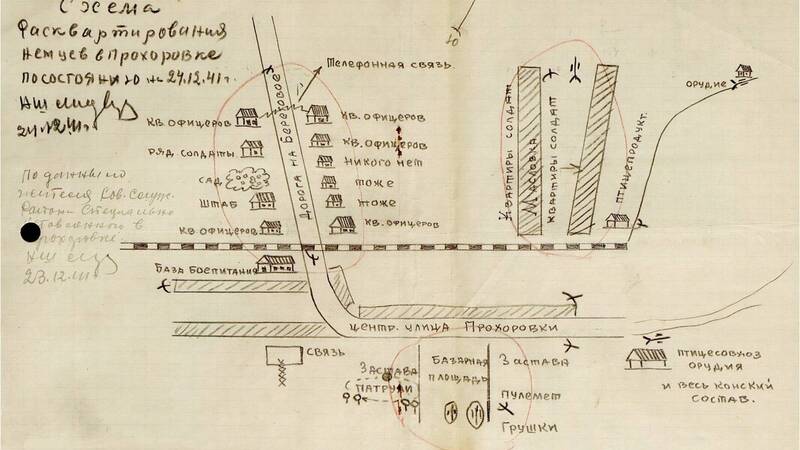 Схема
Расквартирования
немцев в Прохоровке
по состоянию на 24.12.41г.
НШ
24.12.41г
По данным
жителя Сов.
района специально
в
Прохоровке
НШ
23.12.41г
Ю
Телефонная связь.
Дорога на Береговое
кв. офицеров
ряд. солдаты
сад
штаб
кв. офицеров
кв. офицеров
кв. офицеров
никого нет
тоже
тоже
кв. офицеров
квартиры солдат
Масловка
квартиры солдат
птицепродукт.
орудие
База воспитания
центр. улица Прохоровки
связь
Застава
с патрули
базарная
площадь
Застава
пулемет
Грушки
птицесовхоз
орудия
и весь конский
состав.